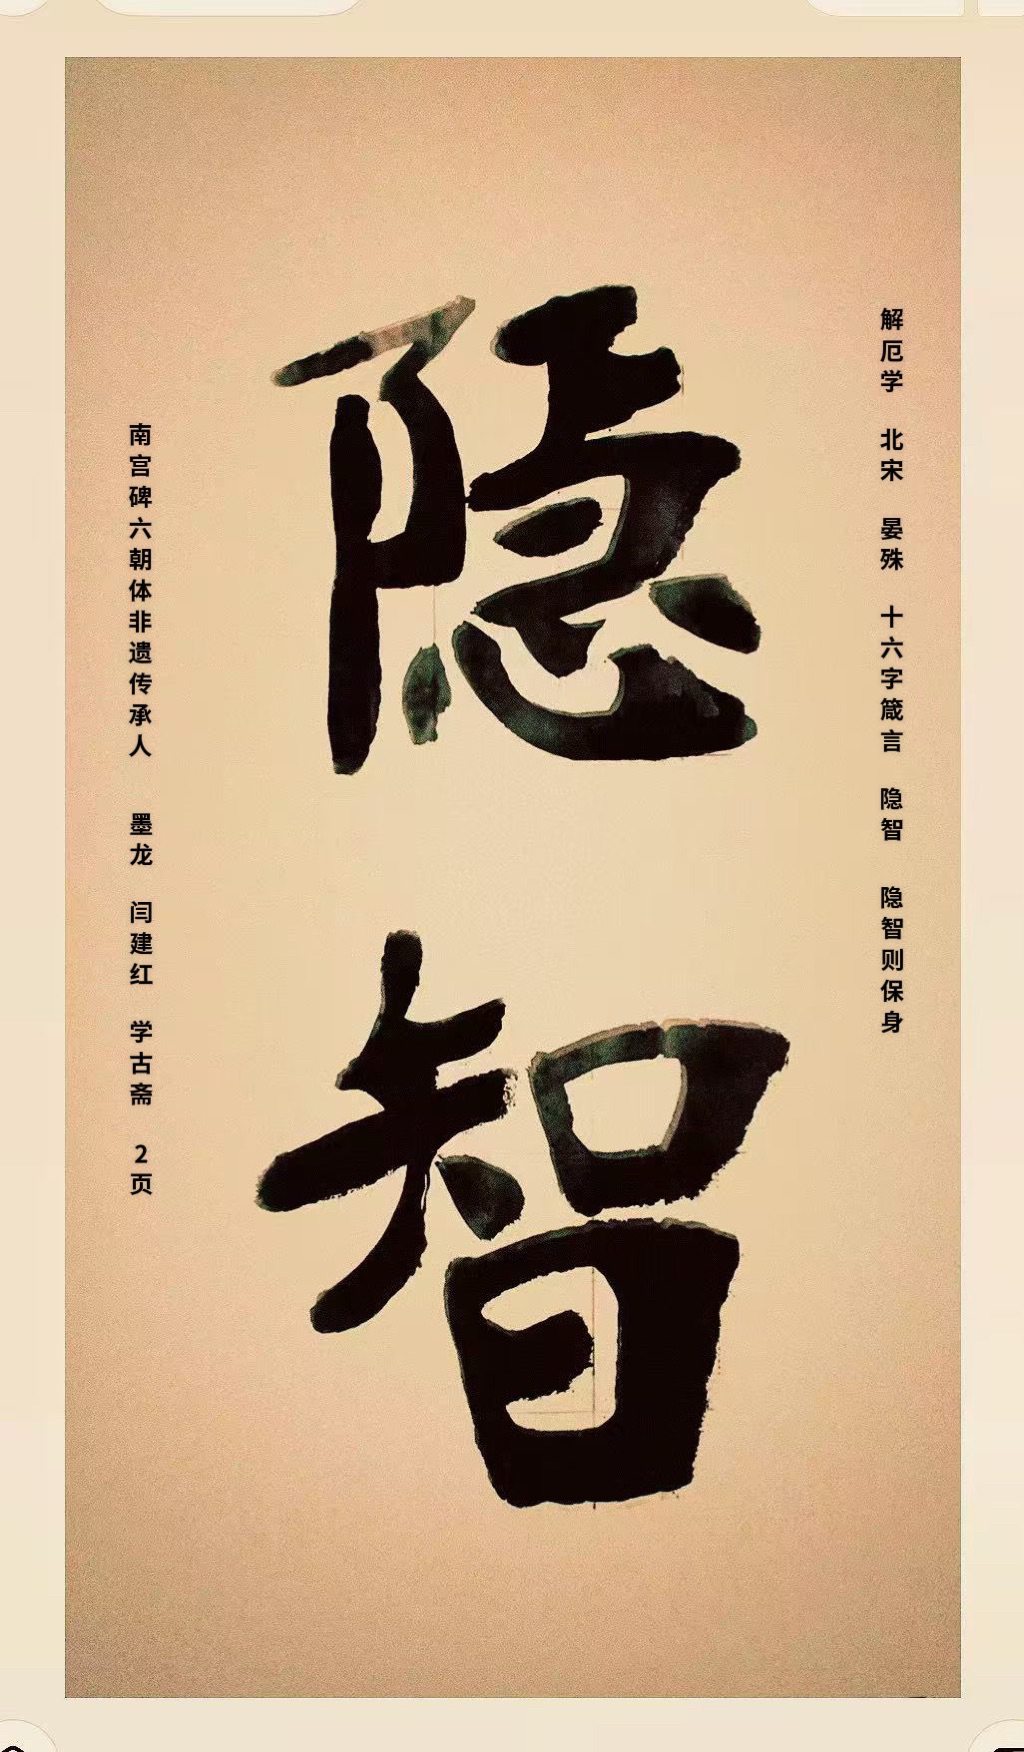 解厄学 北宋 晏殊 十六字箴言 隐智 隐智则保身
隐智
南宫碑六朝体非遗传承人 墨龙 闫建红 学古斋 2页